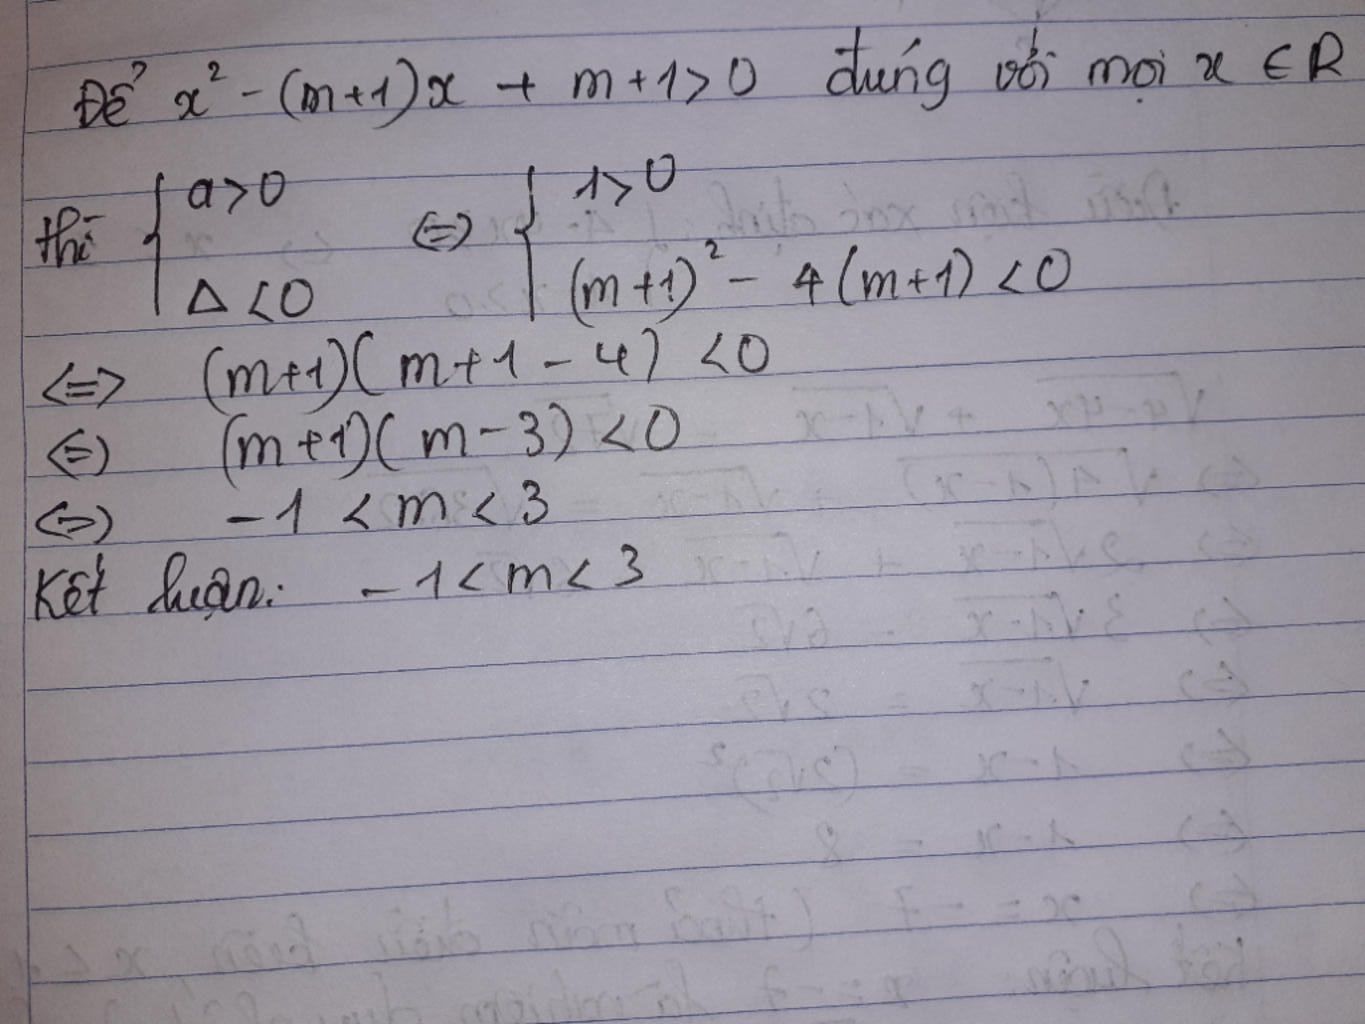 Để x² - (m+1)x + m+1>0 đúng với mọi x ∈ R
thì { a>0 ⇔ { 1>0
Δ<0 (m+1)² - 4(m+1) <0
<=> (m+1)( m+1-4) <0
⇔ (m+1)( m-3) <0
⇔ -1 < m < 3
Kết luận: -1 < m < 3